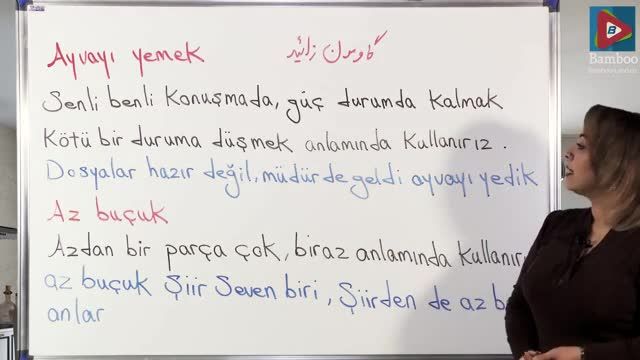 Ayvayı yemek گاومون زائید
Senli benli konuşmada, güç durumda kalmak
Kötü bir duruma düşmek anlamında kullanırız.
Dosyalar hazır değil, müdür de geldi ayvayı yedik
Az buçuk
Azdan bir parça çok, biraz anlamında
az buçuk Şiir Seven biri, Şiirden de az
anlar
B
Bamboo